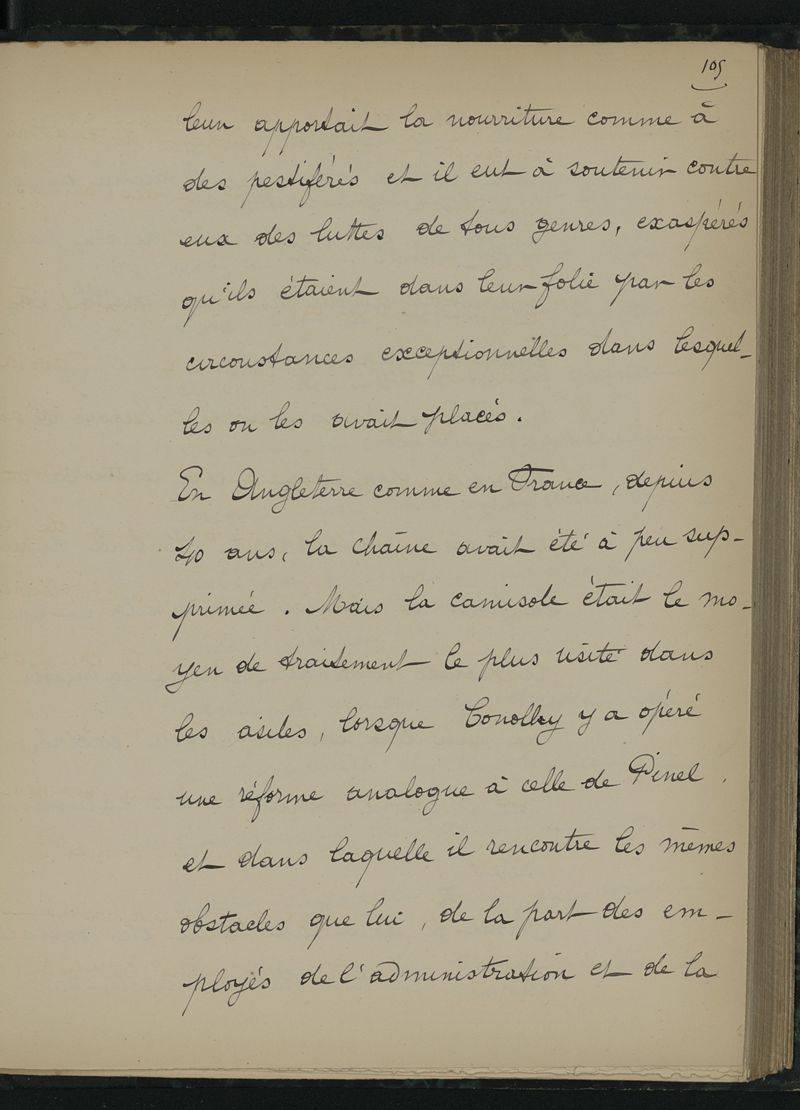 105
leur apportait la nourriture comme à
des pestiférés et il eut à soutenir contre
eux des luttes de tous genres, exaspérés
qu'ils étaient dans leur folie par les
circonstances exceptionnelles dans lesquel-
les on les avait placés.
En Angleterre comme en France, depuis
40 ans, la chaîne avait été à peu sup-
primée. Mais la camisole était le mo-
yen de traitement le plus usité dans
les asiles, lorsque Conolly y a opéré
une réforme analogue à celle de Pinel.
et dans laquelle il rencontre les mêmes
obstacles que lui, de la part des em-
ployés de l'administration et de la